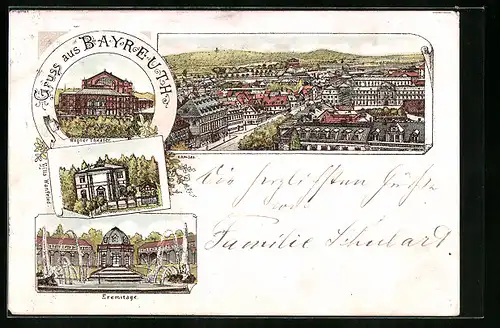 Gruss aus BAYREUTH
Wagner Theater.
Villa Wahnfried
Eremitage.
Die herzlichsten Grüße
von
Familie Schubart